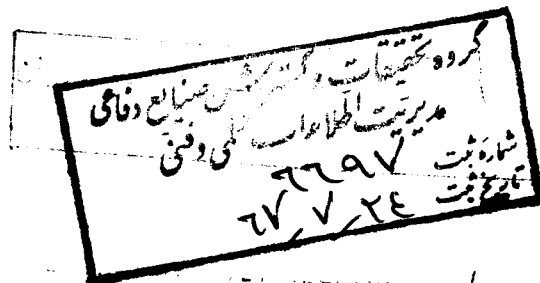 گروه تحقیقات و گسترش صنایع دفاعی
مدیریت اطلاعات علمی و فنی
شماره ثبت ٦٦٩٧
تاریخ ثبت ٦٧_٧_٢٤